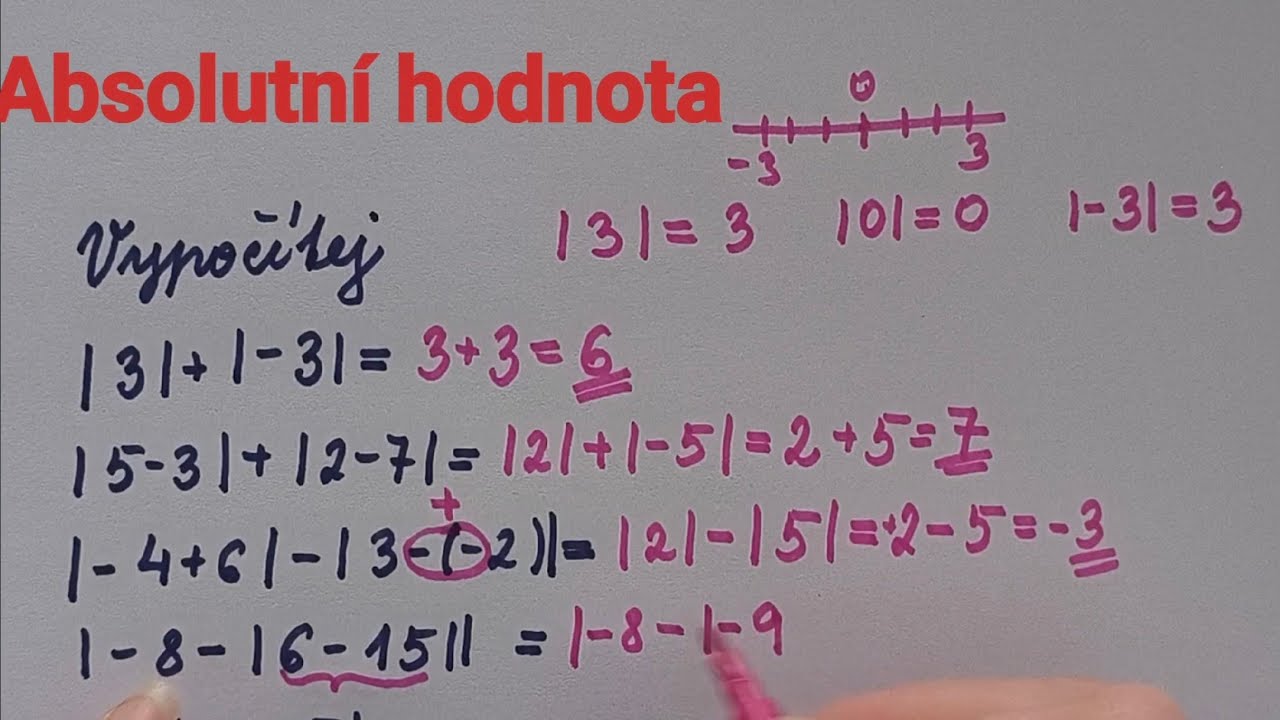 Absolutní hodnota
0
-3 3
|3| = 3 |0| = 0 |-3| = 3
Vypočítej
|3| + |-3| = 3 + 3 = 6
|5-3| + |2-7| = |2| + |-5| = 2 + 5 = 7
+
|-4+6| - |3-(-2)| = |2| - |5| = +2 - 5 = -3
|-8-|6-15|| = |-8-|-9